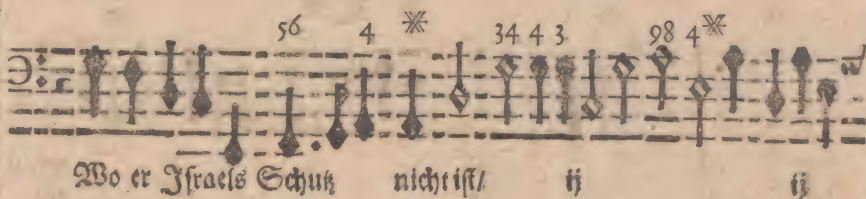 56 4 34 4 3 98 4
Wo er Iſraels Schutz nicht iſt/ ij ij